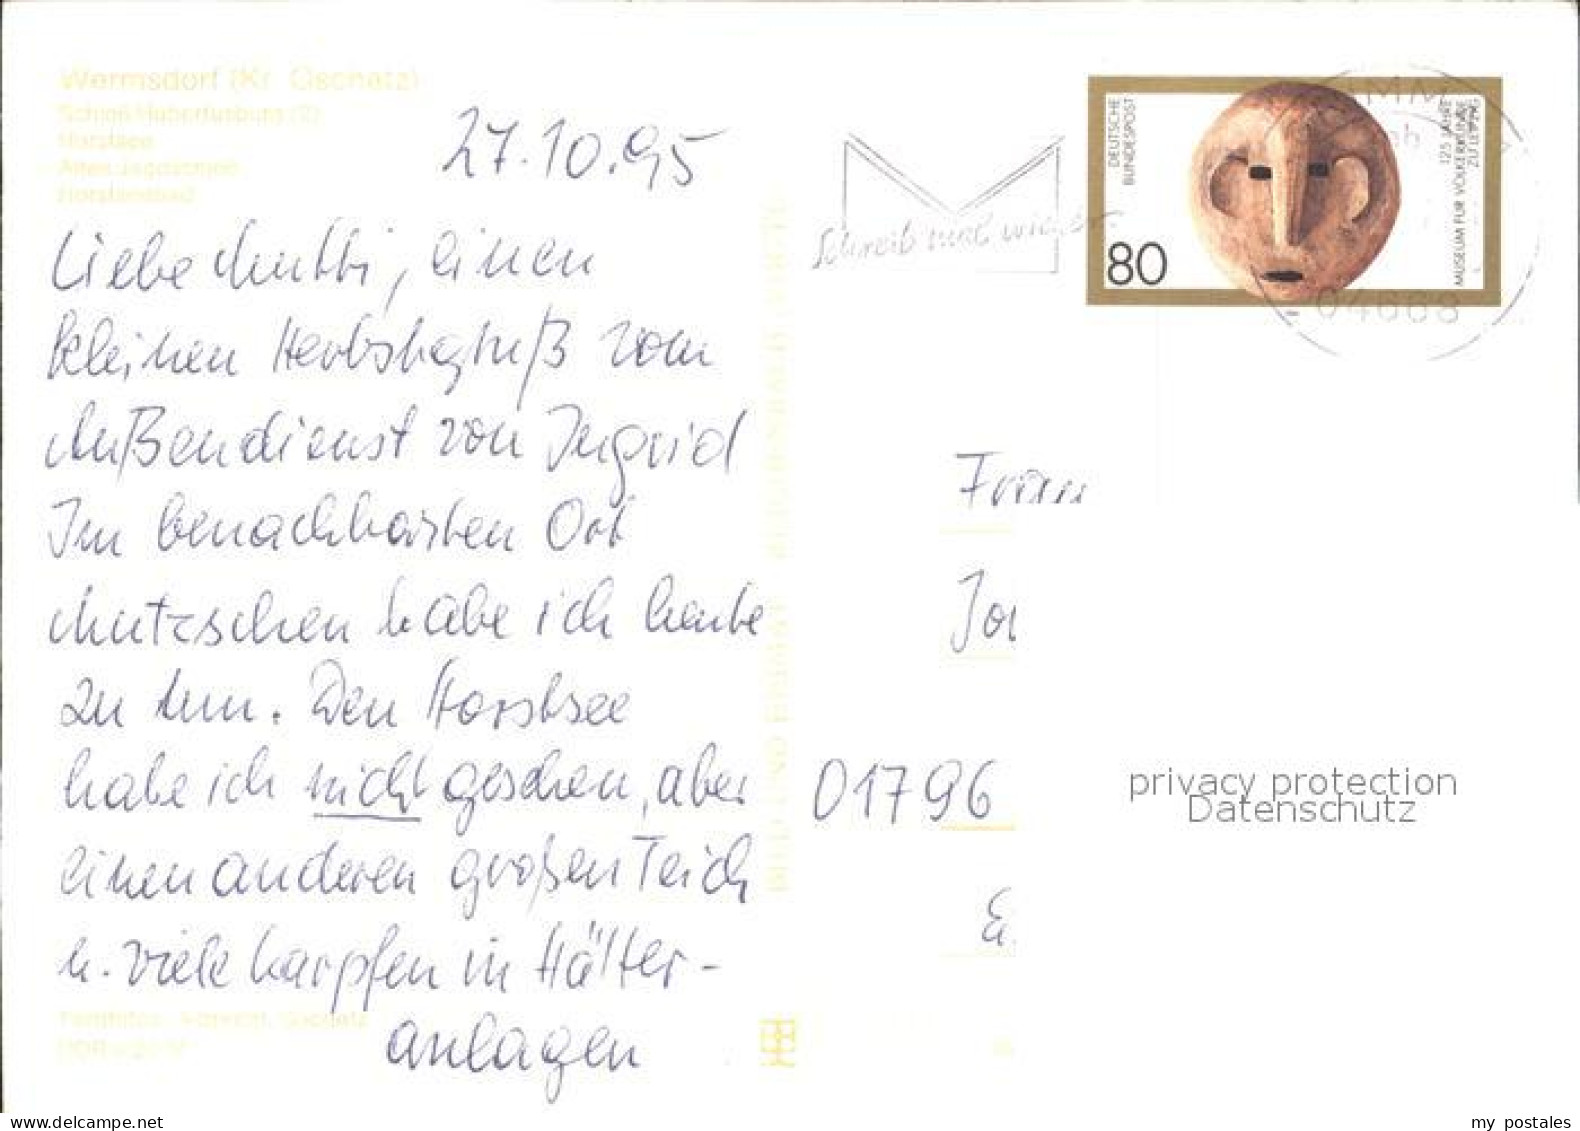 Wermsdorf (Kr. Oschatz)
Schloß Hubertusburg (2)
Horstsee
Altes Jagdschloß
Horstseebad
27.10.95
Liebe Mutti, einen
kleinen Herbstgruß vom
Außendienst von Ingrid
Im benachbarten Ort
Mutzschen habe ich heute
zu tun. Den Horstsee
habe ich nicht gesehen, aber
einen anderen großen Teich
u. viele Karpfen in Hälter-
anlagen
BILD UND HEIMAT REICHENBACH
Schreib mal wieder
DEUTSCHE
BUNDESPOST
80
125 JAHRE
MUSEUM FÜR VÖLKERKUNDE
ZU LEIPZIG
04668
Frau
01796
privacy protection
Datenschutz
my postales